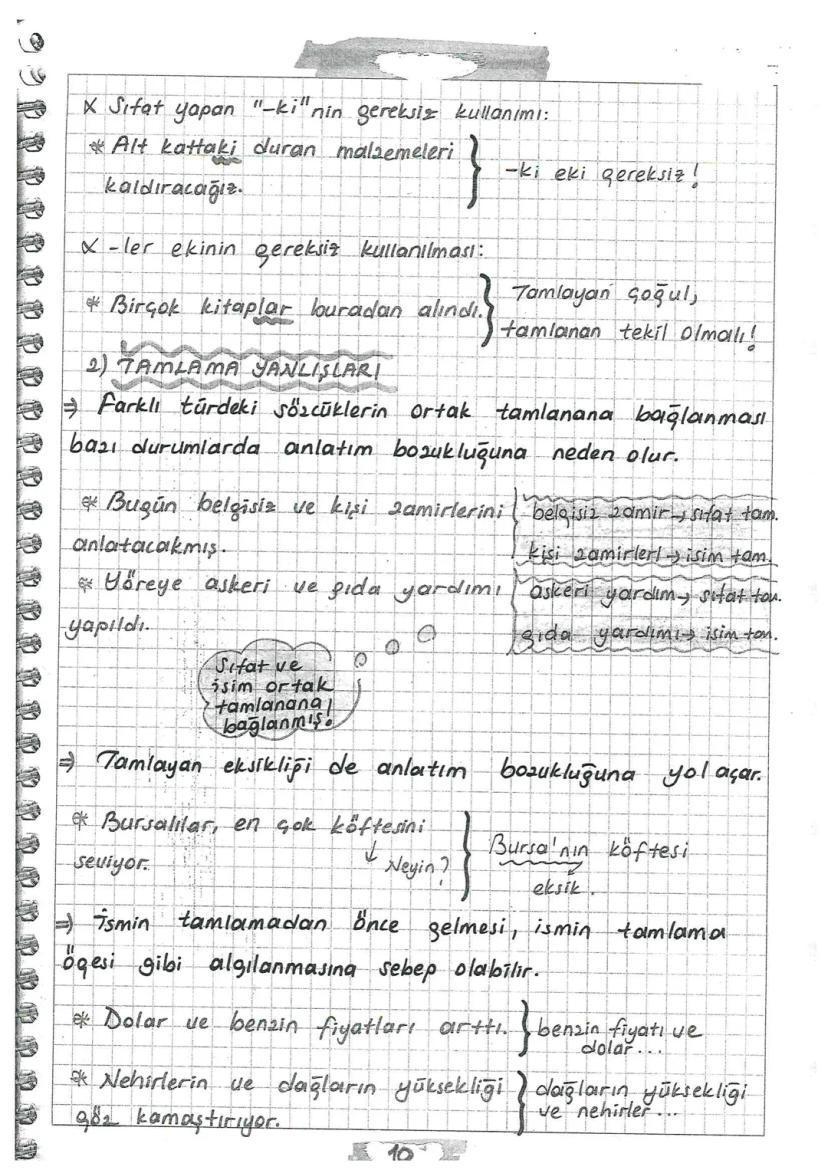 ∝ Sıfat yapan "-ki"nin gereksiz kullanımı:
* Alt kattaki duran malzemeleri
kaldıracağız.
-ki eki gereksiz!
∝ -ler ekinin gereksiz kullanılması:
* Birçok kitaplar buradan alındı.
Tamlayan çoğul,
tamlanan tekil olmalı!
2) TAMLAMA YANLIŞLARI
⇒ Farklı türdeki sözcüklerin ortak tamlanana bağlanması
bazı durumlarda anlatım bozukluğuna neden olur.
* Bugün belgisiz ve kişi zamirlerini
anlatacakmış.
belgisiz zamir → sıfat tam.
kişi zamirleri → isim tam.
* Yöreye askeri ve gıda yardımı
yapıldı.
askeri yardım → sıfat tam.
gıda yardımı → isim tam.
Sıfat ve
isim ortak
tamlanana
bağlanmış!
⇒ Tamlayan eksikliği de anlatım bozukluğuna yol açar.
* Bursalılar, en çok köftesini
seviyor.
↓ Neyin?
Bursa'nın köftesi
eksik.
⇒ İsmin tamlamadan önce gelmesi, ismin tamlama
öğesi gibi algılanmasına sebep olabilir.
* Dolar ve benzin fiyatları arttı.
benzin fiyatı ve
dolar...
* Nehirlerin ve dağların yüksekliği
göz kamaştırıyor.
dağların yüksekliği
ve nehirler...
10